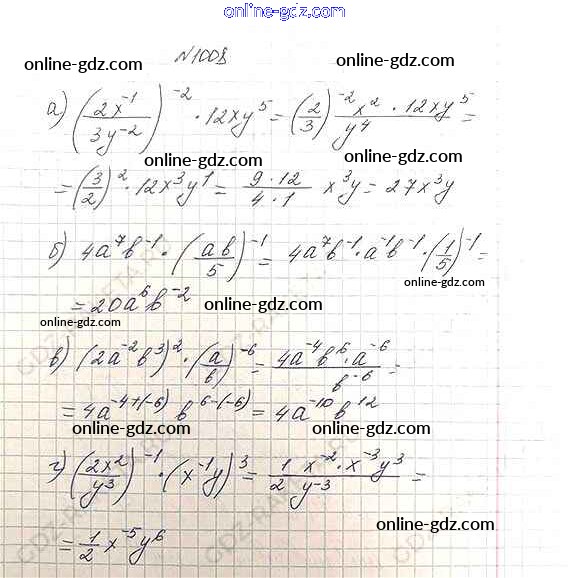 online-gdz.com
№1008
online-gdz.com online-gdz.com
а) (2x⁻¹/3y⁻²)⁻² · 12xy⁵ = (2/3)⁻² x² · 12xy⁵/y⁴ =
online-gdz.com online-gdz.com
= (3/2)² · 12x³y¹ = 9·12/4·1 x³y = 27x³y
online-gdz.com online-gdz.com
б) 4a⁷b⁻¹ · (ab/5)⁻¹ = 4a⁷b⁻¹ · a⁻¹b⁻¹ · (1/5)⁻¹ =
= 20a⁶b⁻²
online-gdz.com online-gdz.com online-gdz.com
в) (2a⁻²b³)² · (a/b)⁻⁶ = 4a⁻⁴b⁶·a⁻⁶/b⁻⁶ =
= 4a⁻⁴⁺⁽⁻⁶⁾ b⁶⁻⁽⁻⁶⁾ = 4a⁻¹⁰b¹²
online-gdz.com online-gdz.com
г) (2x²/y³)⁻¹ · (x⁻¹y)³ = 1/2 x⁻²·x⁻³y³/y⁻³ =
online-gdz.com
= 1/2 x⁻⁵y⁶
online-gdz.com